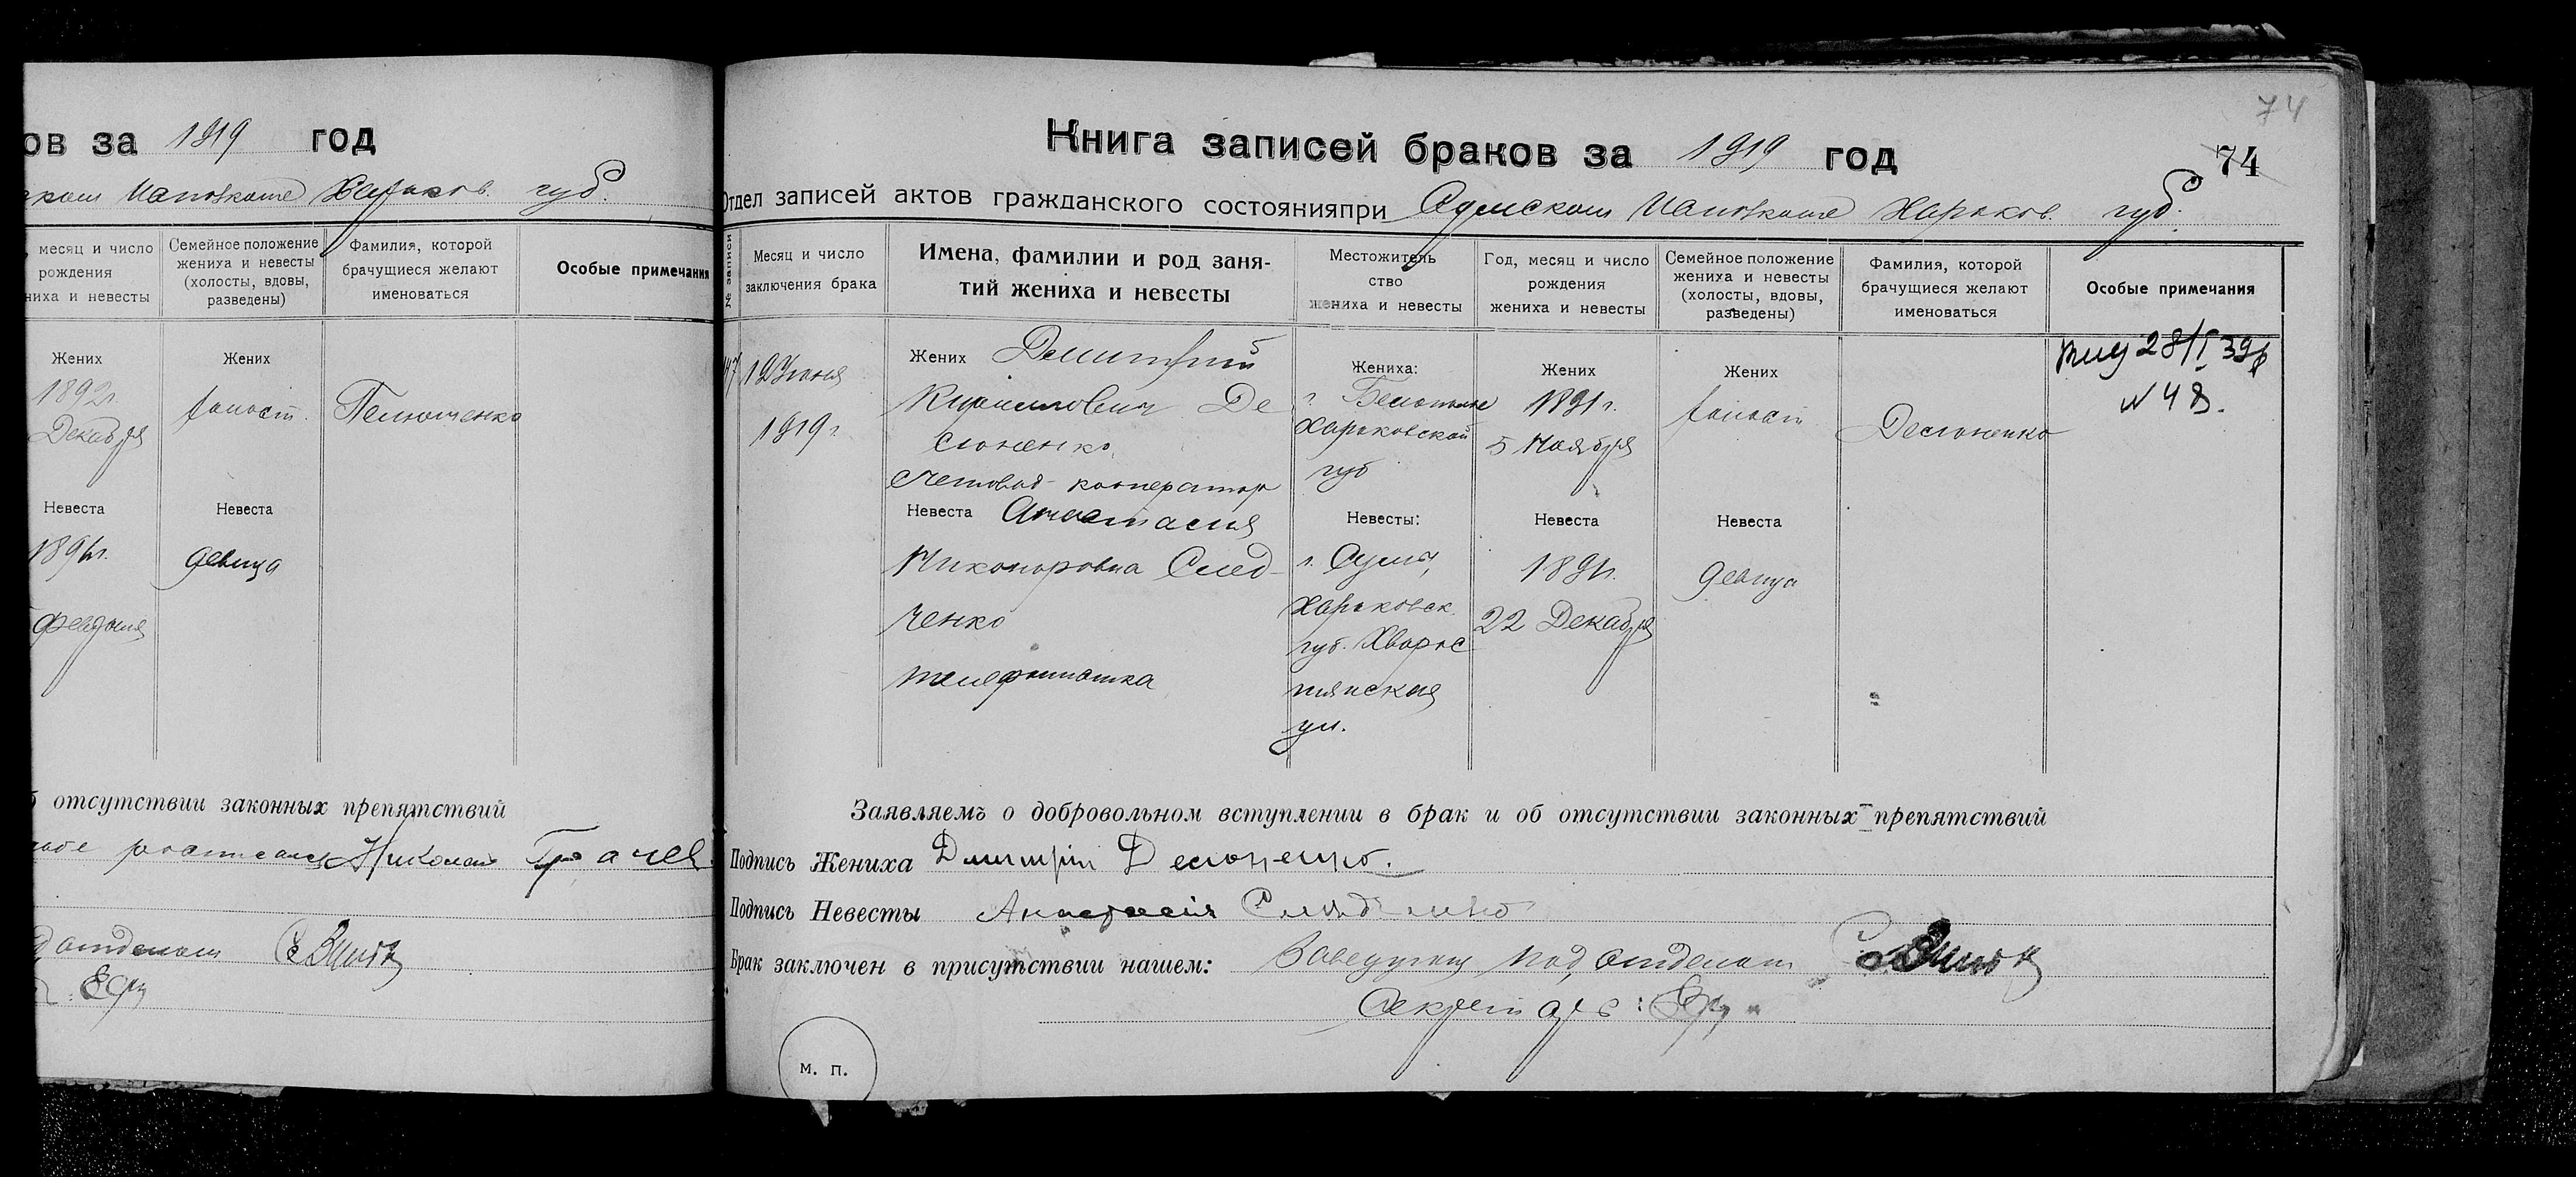 ов за 1919 год
губ.
месяц и число
рождения
ниха и невесты
Семейное положение
жениха и невесты
(холосты, вдовы,
разведены)
Фамилия, которой
брачущиеся желают
именоваться
Особые примечания
Жених
1892г.
Декабря
Жених
холост.
Невеста
Невеста
девица
отсутствии законных препятствий
Николай
отделом
74
Книга записей браков за 1919 год
74
Отдел записей актов гражданского состоянияпри Сумском Исполкоме Харьков. губ.
№ записи
Месяц и число
заключения брака
Имена, фамилии и род заня-
тий жениха и невесты
Местожитель
ство
жениха и невесты
Год, месяц и число
рождения
жениха и невесты
Семейное положение
жениха и невесты
(холосты, вдовы,
разведены)
Фамилия, которой
брачущиеся желают
именоваться
Особые примечания
1919г.
Жених Димитрий
Кириллович Де
сюненко
Счетовод-кооператор
Жениха:
г. Белополье
Харьковской
губ
Жених
1891г.
5 Ноября
Жених
холост
Десюненко
28/I 39
№ 48.
Невеста Анастасия
Никоноровна След-
ченко
телефонистка
Невесты:
г. Сумы,
Харьковск.
губ.
ул.
Невеста
22 Декабря
Невеста
девица
Заявляемъ о добровольном вступлении в брак и об отсутствии законных препятствий
Подпись Жениха Димитрій Десюненко.
Подпись Невесты Анастасія Слѣдченко
Брак заключен в присутствии нашем: Заведующ под, отделом
Секретарь:
м. п.